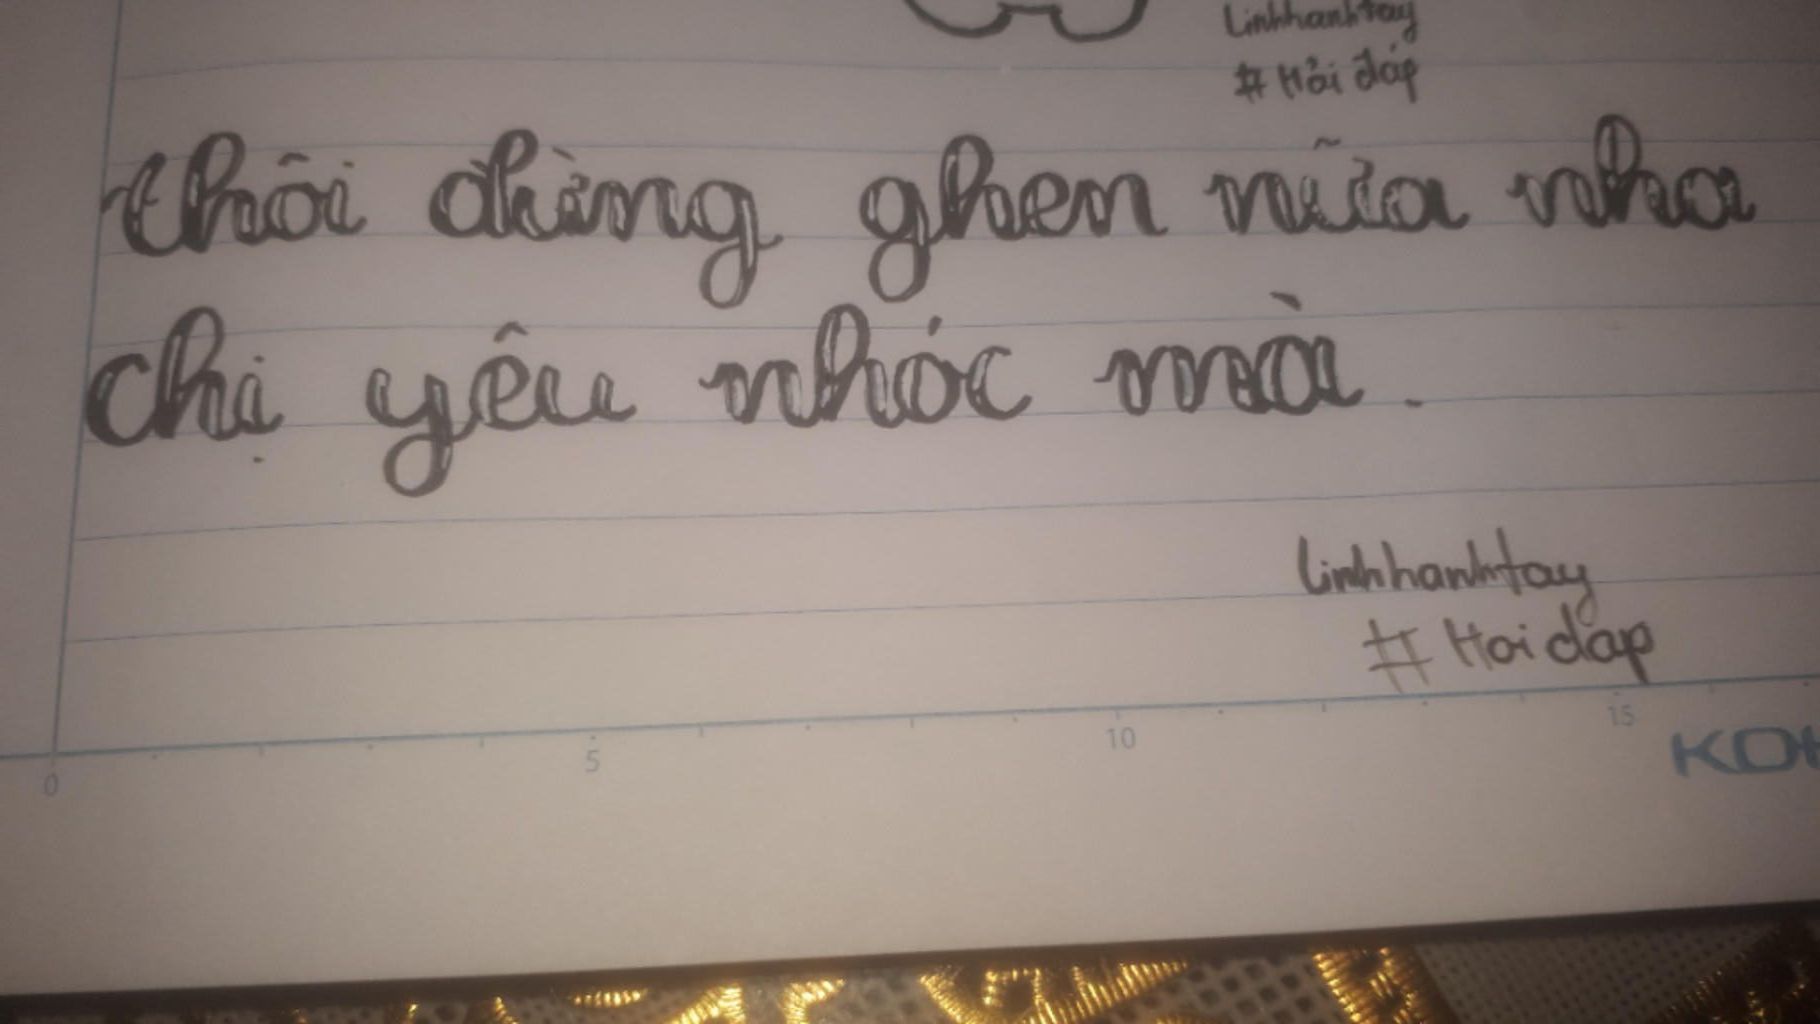 Linhhanhtay
# Hỏi đáp
thôi đừng ghen nữa nha
chị yêu nhóc mà.
Linhhanhtay
# Hoi dap
0 5 10 15